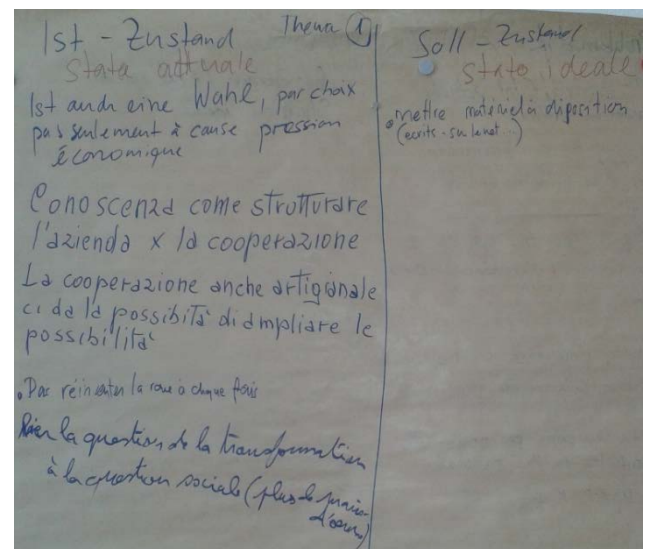 Ist - Zustand Thema 1
Stata attuale
Ist auch eine Wahl, par choix
pas seulement à cause pression
économique
Conoscenza come strutturare
l'azienda x la cooperazione
La cooperazione anche artigianale
ci da la possibilità di ampliare le
possibilità
. Pas réinventer la roue à chaque fois
Lier la question de la transformation
à la question sociale (plus de
d'œuvre)
Soll - Zustand
stato ideale
. mettre matériel à disposition
(écrits - sur le net...)